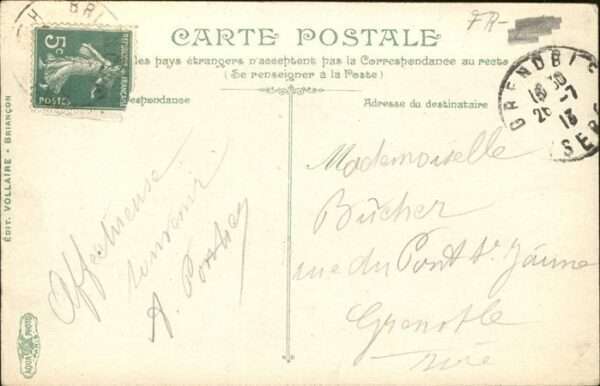 FR-
CARTE POSTALE
les pays étrangers n'acceptent pas la Correspondance au recto
(Se renseigner à la Poste)
respondance
Adresse du destinataire
5c
POSTES
BRI
GRENOBLE
18 30
26 -7
13
ISERE
Mademoiselle
Bücher
rue du Pont St Jaime
Grenoble
Isère
Affectueuse
souvenir
A.
ÉDIT. VOLLAIRE - BRIANÇON
AQUA PHOTO